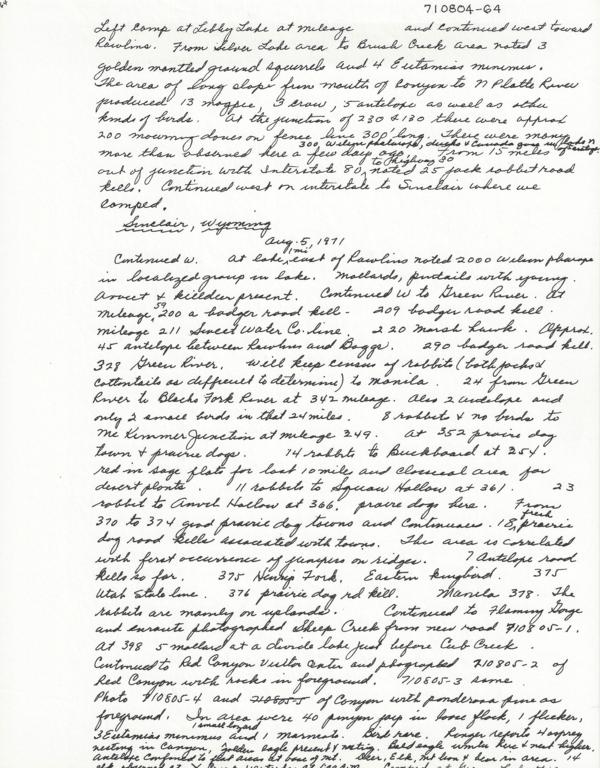 710804-64
Left camp at Libby Lake at mileage and continued west toward
Rawlins. From Silver Lake area to Brush Creek area noted 3
golden mantled ground squirrels and 4 Eutamias minimus.
The area of long slope from mouth of Canyon to N Platte River
produced 13 magpie, 3 crow, 5 antelope as well as other
kinds of birds. At the junction of 230 & 130 there were approx
200 mourning doves on fence line 300' long. There were many
300, Wilson phalarope, ducks & Canada geese in
more than observed here a few days ago. From 15 miles
to Highway 30
out of junction with Interstate 80, noted 25 jack rabbit road
kills. Continued west on interstate to Sinclair where we
camped.
Sinclair, Wyoming
Aug. 5, 1971
Continued W. At lake, 1 mi. east of Rawlins noted 2000 Wilson phalarope
in localized group in lake. Mallards, pintails with young.
Avocet & killdeer present. Continued W to Green River. At
mileage 200 a badger road kill - 209 badger road kill
mileage 211 Sweet Water Co. line. 220 Marsh hawk. Approx.
45 antelope between Rawlins and Baggs. 290 badger road kill.
328 Green River. Will keep census of rabbits (both jacks &
cottontails as difficult to determine) to Manila. 24 from Green
River to Blacks Fork River at 342 mileage. Also 2 antelope and
only 2 small birds in that 24 miles. 8 rabbit & no birds to
Mc Kinnon Junction at mileage 349. At 352 prairie dog
town & prairie dogs. 14 rabbits to Buckboard at 354.
red in sage flats for last 10 mile and classical area for
desert plants. 11 rabbits to Squaw Hollow at 361. 23
rabbit to Anvil Hollow at 366, prairie dogs here. From
370 to 374 good prairie dog towns and continues. 18 fresh prairie
dog road kills associated with towns. The area is correlated
with first occurrence of junipers on ridges. 7 Antelope road
kills so far. 375 Henrys Fork, Eastern kingbird. 375
Utah State line. 376 prairie dog rd kill. Manila 378. The
rabbits are mainly on uplands. Continued to Flaming Gorge
and enroute photographed Sheep Creek from new road 710805-1.
At 398 5 mallard at a divide lake just before Cub Creek.
Continued to Red Canyon Visitor Center and photographed 710805-2 of
Red Canyon with rocks in foreground. 710805-3 same
Photo 710805-4 and 710805-5 of Canyon with ponderosa pine as
foreground. In area were 40 pinyon jays in loose flock, 1 flicker,
1 small lizard
3 Eutamias minimus and 1 marmot. Bird rare. Ranger reports 4 osprey
nesting in Canyon, golden eagle present & nesting. Bald eagle winter here & nest higher.
Antelope confined to flat areas at base of mt. Deer, Elk, mt lion & bear in area. 14